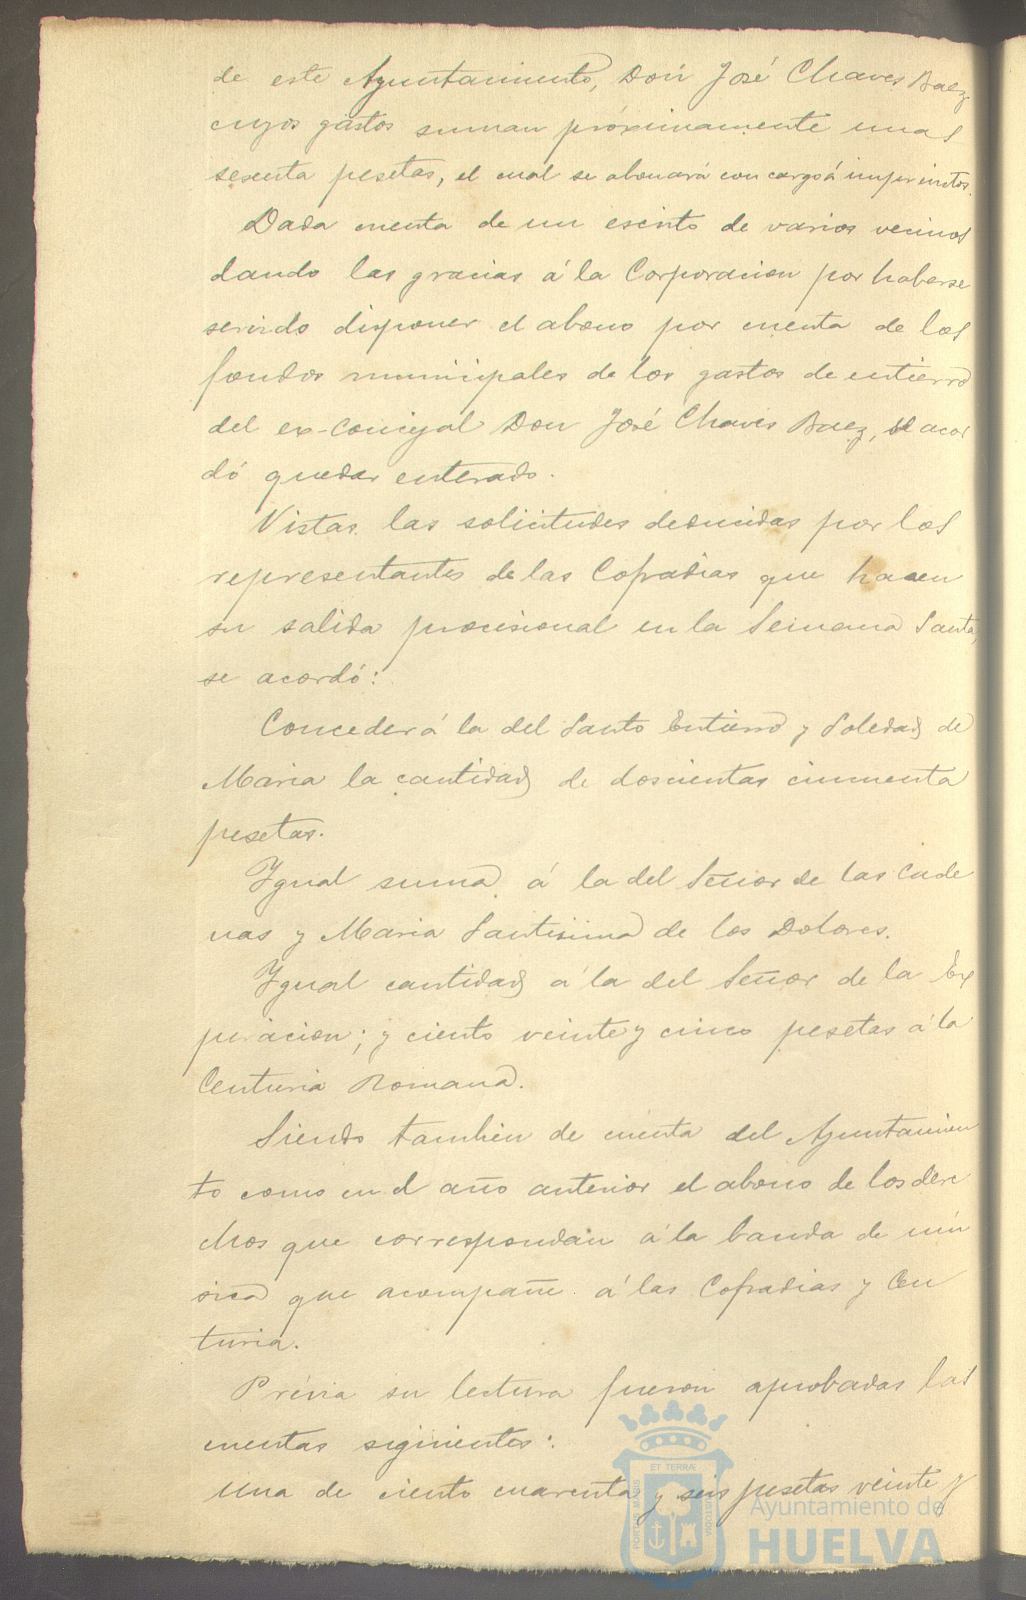 de este Ayuntamiento, Don José Chaves Baez
cuyos gastos suman próximamente unas
sesenta pesetas, el cual se abonará con cargo á imprevistos.
Dada cuenta de un escrito de varios vecinos
dando las gracias á la Corporacion por haberse
servido disponer el abono por cuenta de los
fondos municipales de los gastos de entierro
del ex-concejal Don José Chaves Baez, se acor
dó quedar enterado.
Vistas las solicitudes deducidas por los
representantes de las Cofradias que hacen
su salida procesional en la Semana Santa,
se acordó:
Conceder á la del Santo Entierro y Soledad de
Maria la cantidad de doscientas cincuenta
pesetas.
Ygual suma á la del Señor de las Cade
nas y Maria Santisima de los Dolores.
Ygual cantidad á la del Señor de la Ex
piracion; y ciento veinte y cinco pesetas á la
Centuria Romana.
Siendo tambien de cuenta del Ayuntamien
to como en el año anterior el abono de los dere
chos que correspondan á la banda de mú
sica que acompañe á las Cofradias y Cen
turia.
Prévia su lectura fueron aprobadas las
cuentas siguientes:
Una de ciento cuarenta y seis pesetas veinte y
ET TERRÆ
PORTUS MARIS
CUSTODIA
Ayuntamiento de
HUELVA